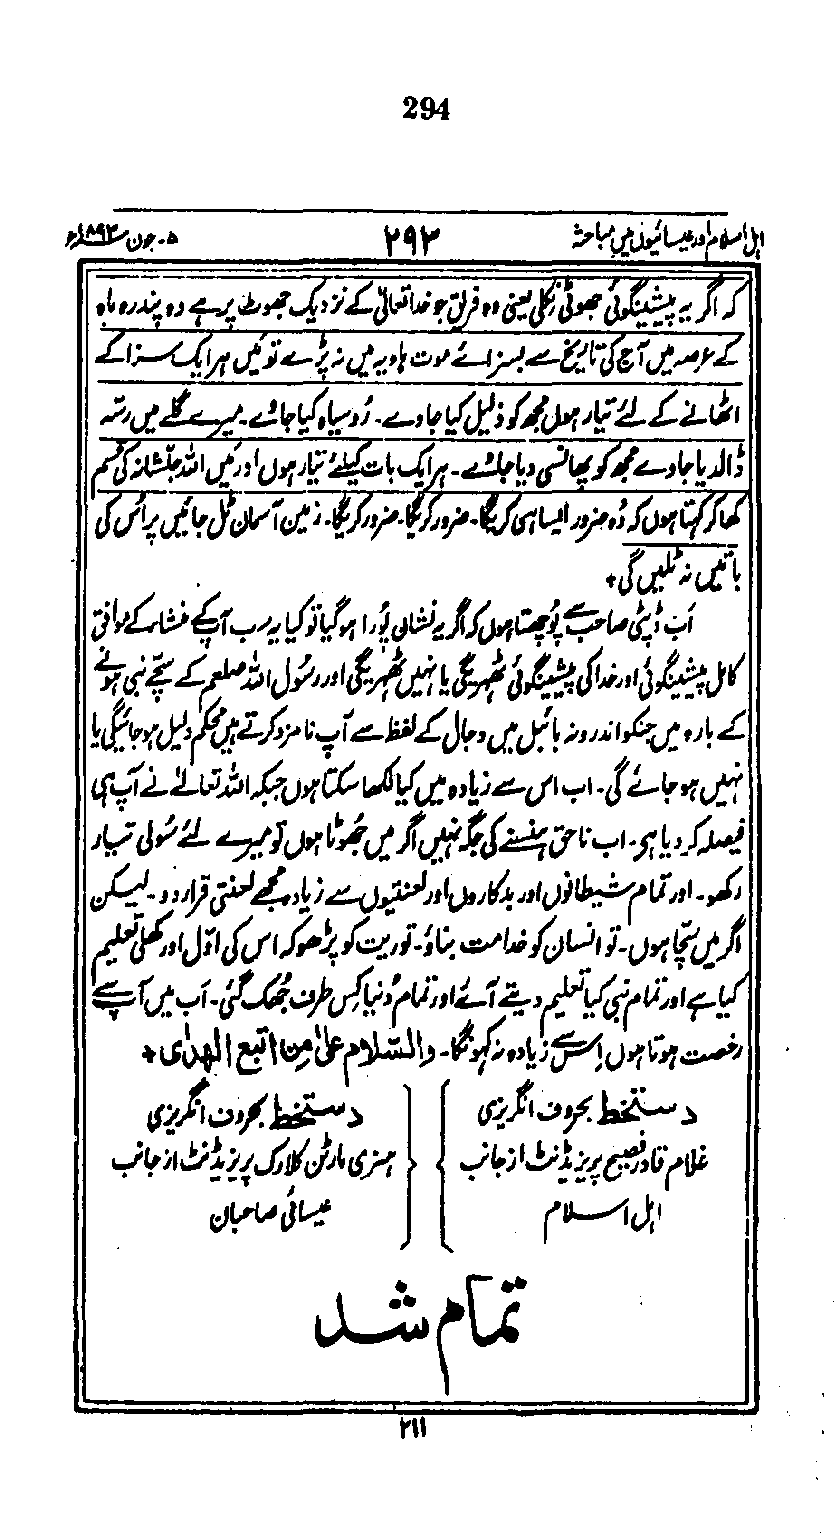 294
اہل اسلام اور عیسائیوں میں مباحثہ
۲۹۳
۵۔ جون ۱۸۹۳ء
کہ اگر یہ پیشینگوئی جھوٹی نکلی یعنی وہ فریق جو خدا تعالیٰ کے نزدیک جھوٹ پر ہے وہ پندرہ ماہ
کے عرصہ میں آج کی تاریخ سے بسزائے موت ہاویہ میں نہ پڑے تو میں ہر ایک سزا کے
اٹھانے کے لئے تیار ہوں مجھ کو ذلیل کیا جاوے۔ رُوسیاہ کیا جاوے۔ میرے گلے میں رسّہ
ڈالدیا جاوے مجھ کو پھانسی دیا جاوے۔ ہر ایک بات کیلئے تیار ہوں اور میں اللہ جلّشانہ کی قسم
کھا کر کہتا ہوں کہ وُہ ضرور ایسا ہی کریگا۔ ضرور کریگا۔ ضرور کریگا۔ زمین آسمان ٹل جائیں پر اُس کی
باتیں نہ ٹلیں گی +
اَب ڈپٹی صاحب سے پُوچھتا ہوں کہ اگر یہ نشان پُورا ہوگیا تو کیا یہ سب آپ کے منشاء کے موافق
کامل پیشینگوئی اور خدا کی پیشینگوئی ٹھیریگی یا نہیں ٹھیریگی اور رسُول اللہ صلعم کے سچّے نبی ہونے
کے بارہ میں جنکو اندرونہ بائبل میں دجال کے لفظ سے آپ نامزد کرتے ہیں محکم دلیل ہو جائیگی یا
نہیں ہو جائے گی۔ اب اس سے زیادہ میں کیا لکھ سکتا ہوں جبکہ اللہ تعالےٰ نے آپ ہی
فیصلہ کر دیا ہی۔ اب ناحق ہنسنے کی جگہ نہیں اگر میں جُھوٹا ہوں تو میرے لئے سُولی تیار
رکھو۔ اور تمام شیطانوں اور بدکاروں اور لعنتیوں سے زیادہ مجھے لعنتی قرار دو۔ لیکن
اگر میں سچّا ہوں۔ تو انسان کو خدا مت بناؤ۔ توریت کو پڑھو کہ اس کی اوّل اور کھلی تعلیم
کیا ہے اور تمام نبی کیا تعلیم دیتے آئے اور تمام دُنیا کِس طرف جُھک گئی۔ اَب میں آپ سے
رخصت ہوتا ہوں اِس سے زیادہ نہ کہونگا۔ والسّلام علیٰ من اتبع الھدٰی +
دستخط بحروف انگریزی
غلام قادر فصیح پریزیڈنٹ از جانب
اہل اسلام
دستخط بحروف انگریزی
ہنری مارٹن کلارک پریزیڈنٹ از جانب
عیسائی صاحبان
تمام شد
۲۱۱